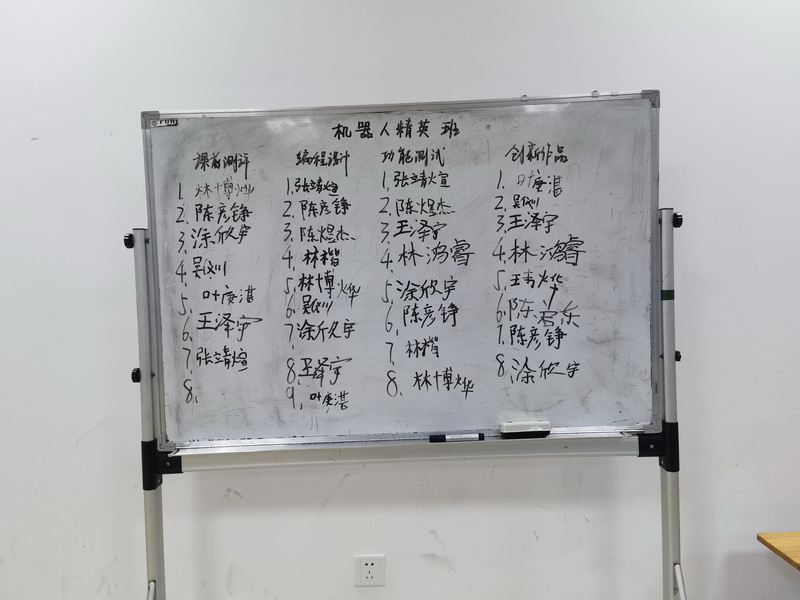 机器人精英班
课前测评
1. 林博烨
2. 陈彦铮
3. 涂欣宇
4. 吴仪川
5. 叶庚湛
6. 王泽宇
7. 张靖煊
8.
编程设计
1. 张靖煊
2. 陈彦铮
3. 陈煜杰
4. 林楷
5. 林博烨
6. 吴仪川
7. 涂欣宇
8. 王泽宇
9. 叶庚湛
功能测试
1. 张靖煊
2. 陈煜杰
3. 王泽宇
4. 林鸿睿
5. 涂欣宇
6. 陈彦铮
7. 林楷
8. 林博烨
创新作品
1. 叶庚湛
2. 吴仪川
3. 王泽宇
4. 林鸿睿
5. 王
6. 陈
7. 陈彦铮
8. 涂欣宇